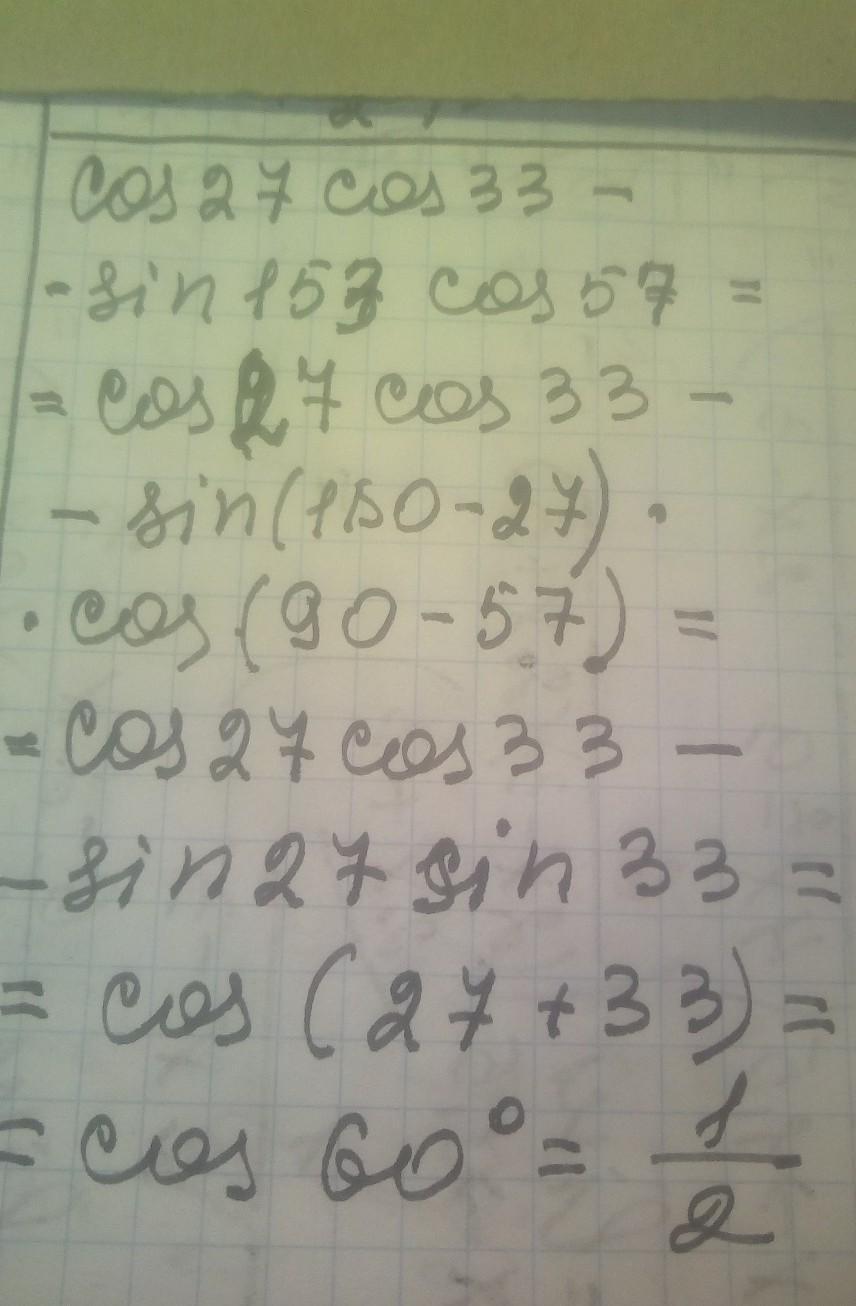 cos 27 cos 33 -
- sin 153 cos 57 =
= cos 27 cos 33 -
- sin(180 - 27) ·
· cos (90 - 57) =
= cos 27 cos 33 -
- sin 27 sin 33 =
= cos (27 + 33) =
= cos 60° = 1/2